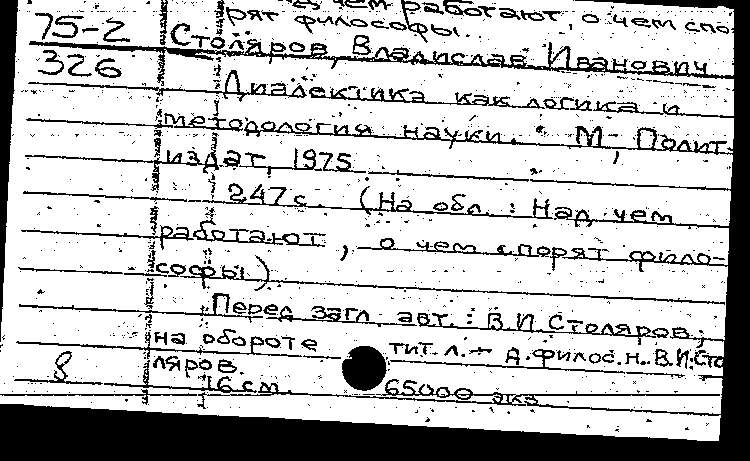 чем работают, о чем спо-
рят философы...
75-2
326
Столяров, Владислав Иванович
Диалектика как логика и
методология науки. М., Полит-
издат, 1975.
247 с. (На обл.: Над чем
работают, о чем спорят фило-
софы)
Перед загл. авт.: В.И. Столяров;
на обороте тит. л. - д. филос. н. В.И. Сто
ляров.
8
16 см. 65000 экз.